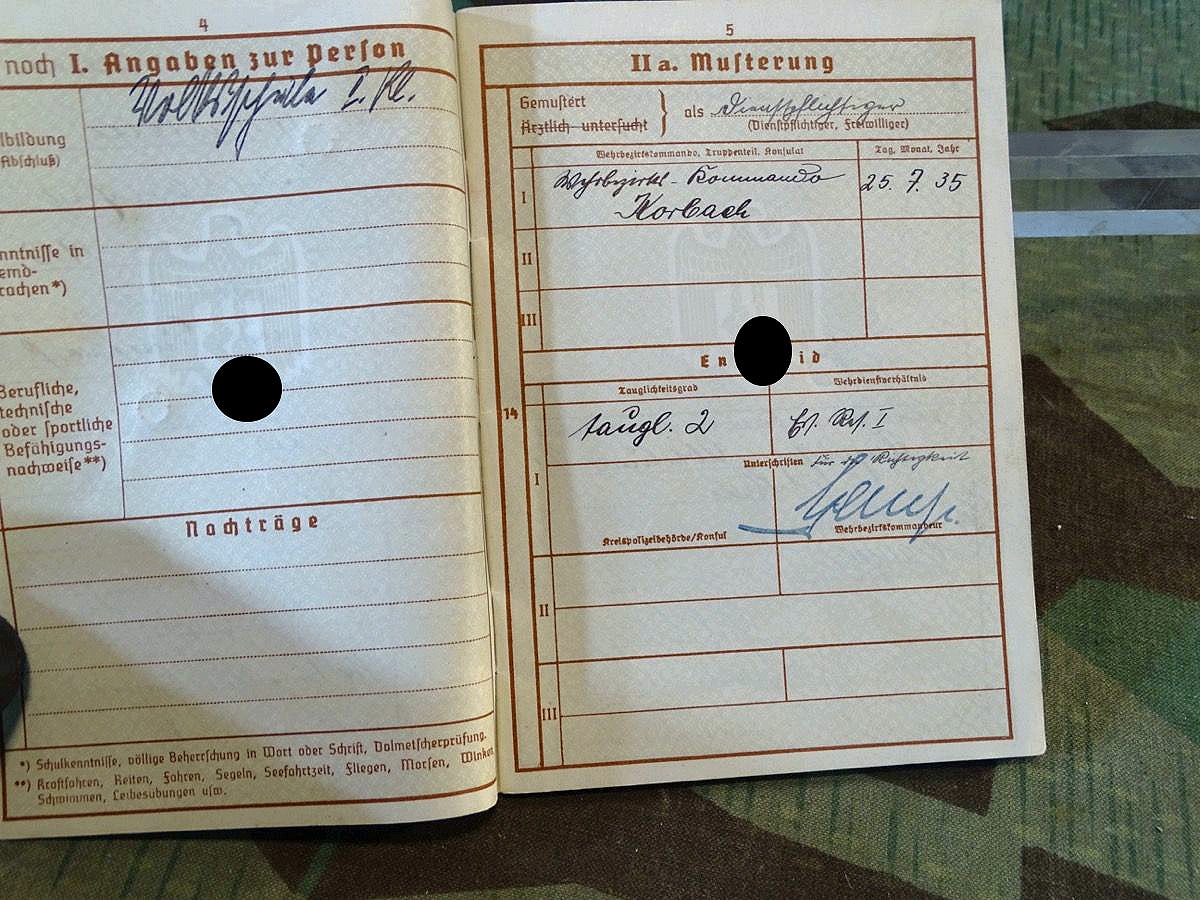 4
noch I. Angaben zur Person
Volksschule 2. Kl.
lbildung
Abschluß)
nntnisse in
emd-
rachen*)
Berufliche,
technische
oder sportliche
Befähigungs-
nachweise**)
Nachträge
*) Schulkenntnisse, völlige Beherrschung in Wort oder Schrift, Dolmetscherprüfung.
**) Kraftfahren, Reiten, Fahren, Segeln, Seefahrtzeit, Fliegen, Morsen, Winken
Schwimmen, Leibesübungen usw.
5
II a. Musterung
Gemustert
Ärztlich untersucht
als Dienstpflichtiger
(Dienstpflichtiger, Freiwilliger)
Wehrbezirkskommando, Truppenteil, Konsulat
Tag, Monat, Jahr
I
Wehrbezirks-Kommando
Korbach
25. 7. 35
II
III
En id
14
Tauglichkeitsgrad
Wehrdienstverhältnis
taugl. 2
Ers. Res. I
I
Unterschriften für die Richtigkeit
Kreispolizeibehörde/Konsul
Wehrbezirkskommandeur
II
III